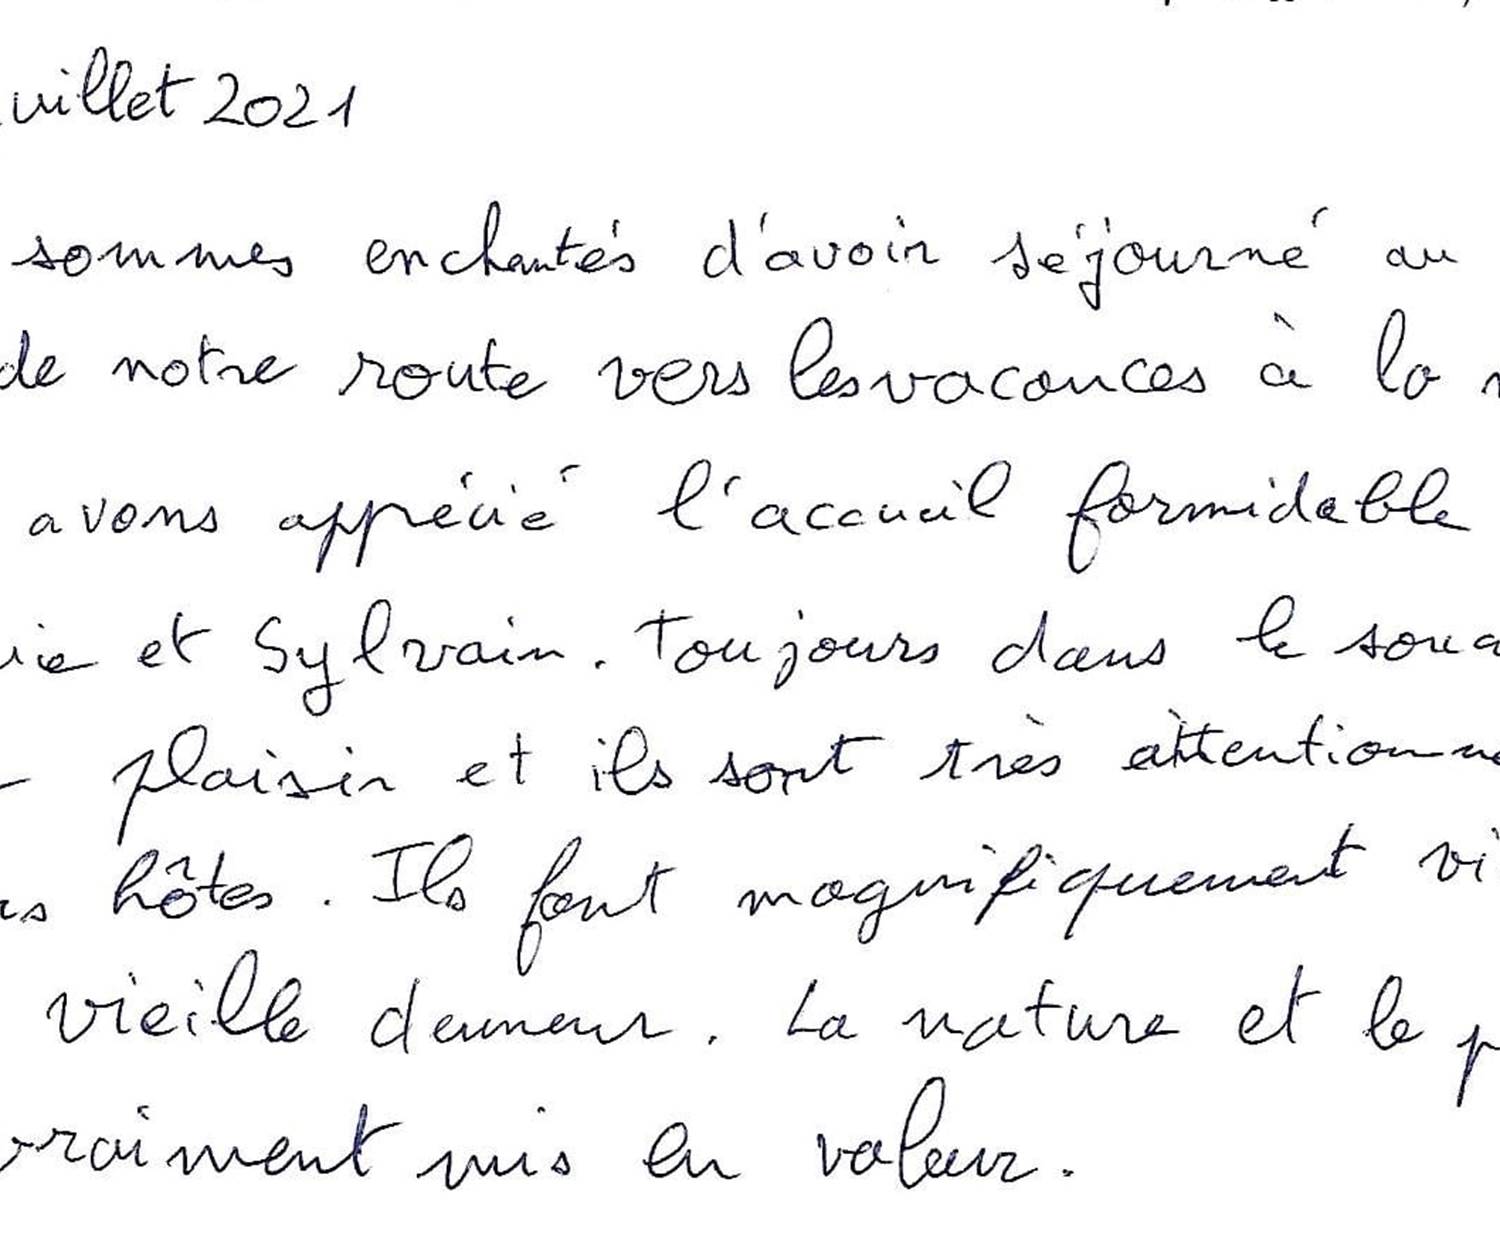 uillet 2021
sommes enchantés d'avoir séjourné au
de notre route vers les vacances à la
avons apprécié l'accueil formidable
et Sylvain. Toujours dans le
plaisir et ils sont très attentionn
hôtes. Ils font magnifiquement vi
vieille demeur. La nature et le p
vraiment mis en valeur.